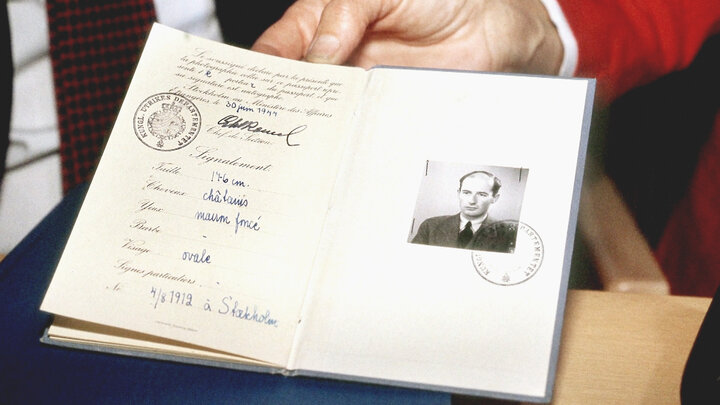 Le soussigné déclare par la présente que
la photographie collée sur ce passeport repré-
sente le porteur du passeport et que
sa signature est autographe
Stockholm, au Ministère des Affaires
Etrangères le 30 juin 1944
Chef de Section.
KUNGL. UTRIKES DEPARTEMENTET
Signalement.
Taille 176 cm.
Cheveux châtains
Yeux marron foncé
Barbe -
Visage ovale
Signes particuliers
Né 4/8 1912 à Stockholm
KUNGL